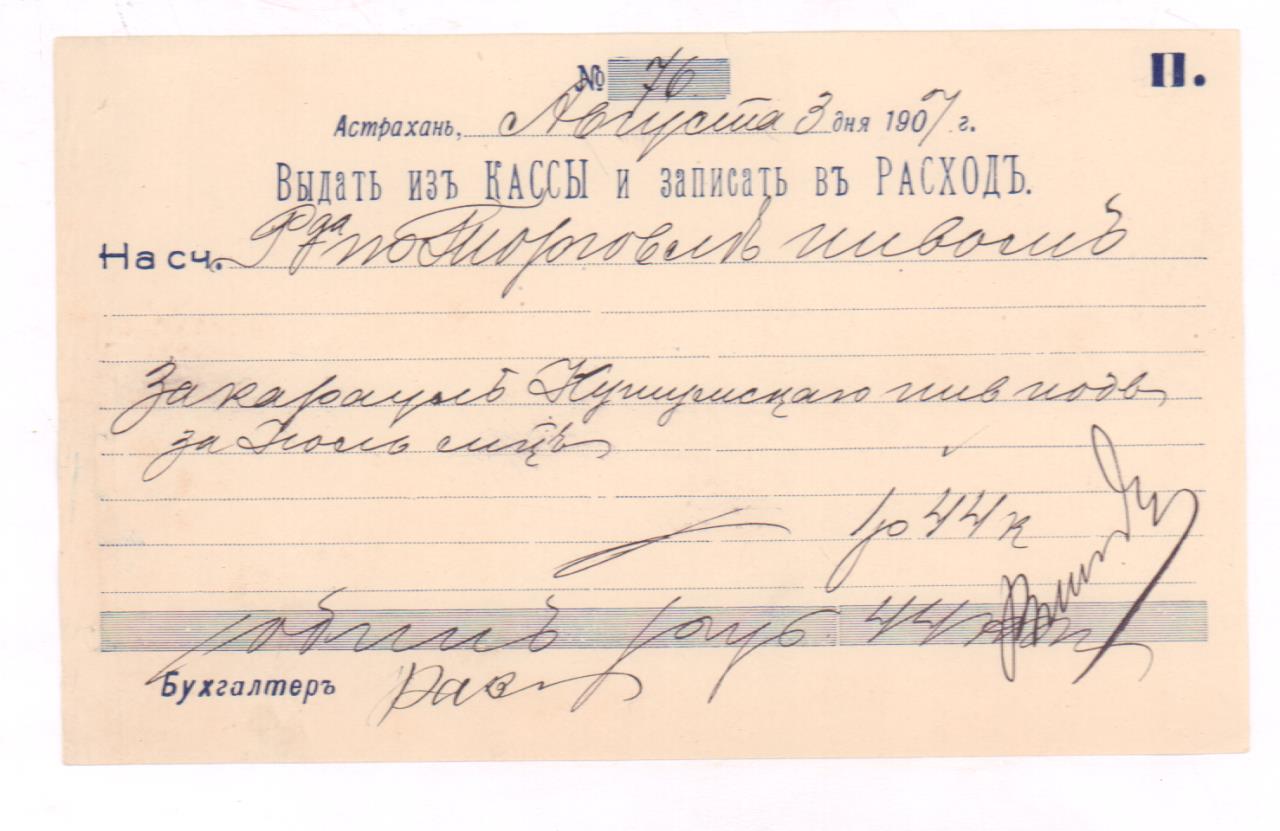 № 76
П.
Астрахань, Августа 3 дня 1907 г.
Выдать изъ КАССЫ и записать въ РАСХОДЪ.
На сч. Рда по Торговлѣ пивомъ
За караулъ Кутумскаго пив подв
за Июль мцъ
1р 44к
Одинъ руб. 44 к
Бухгалтеръ